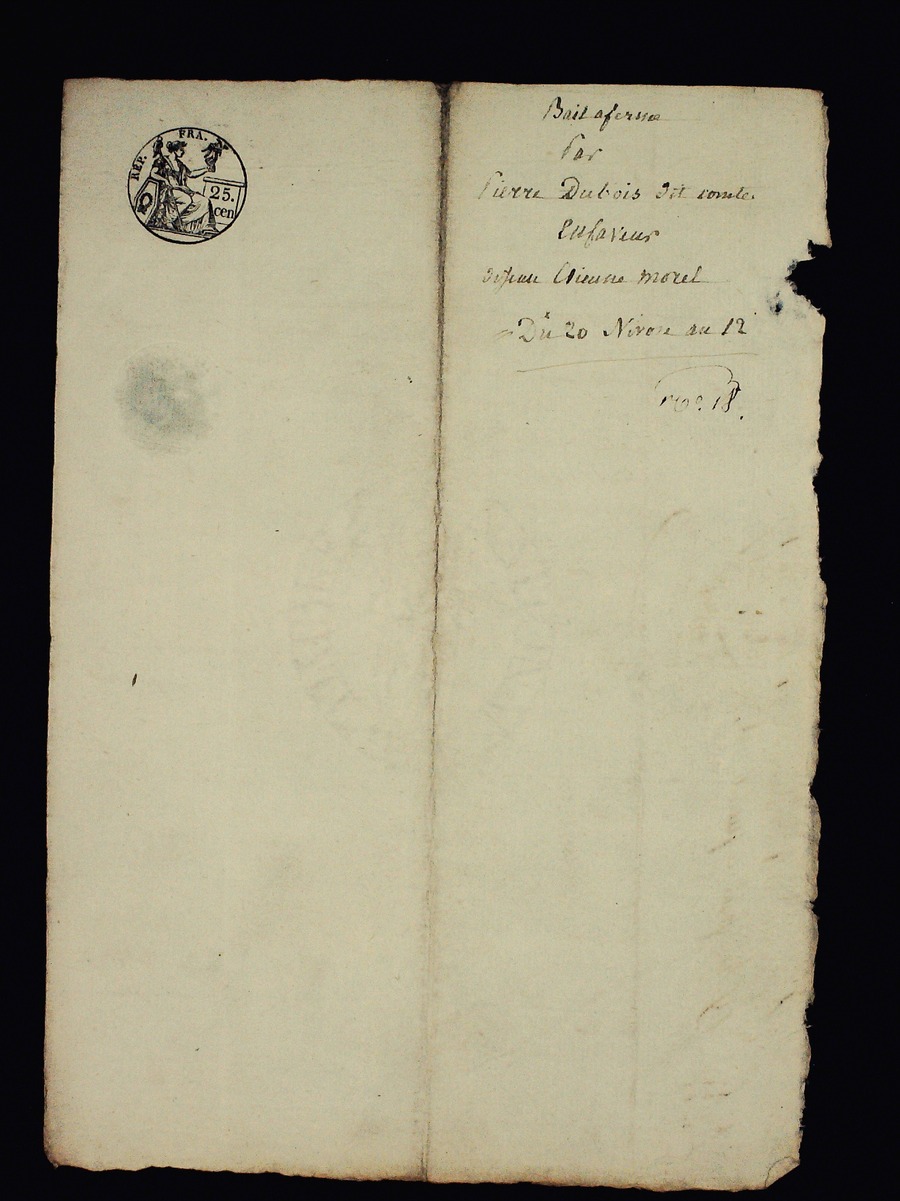 RÉP. FRA.
25.
cen
Bail aferme
Par
Pierre Dubois dit comte
Enfaveur
Etienne morel
Du 20 Nivose an 12
No. 18.